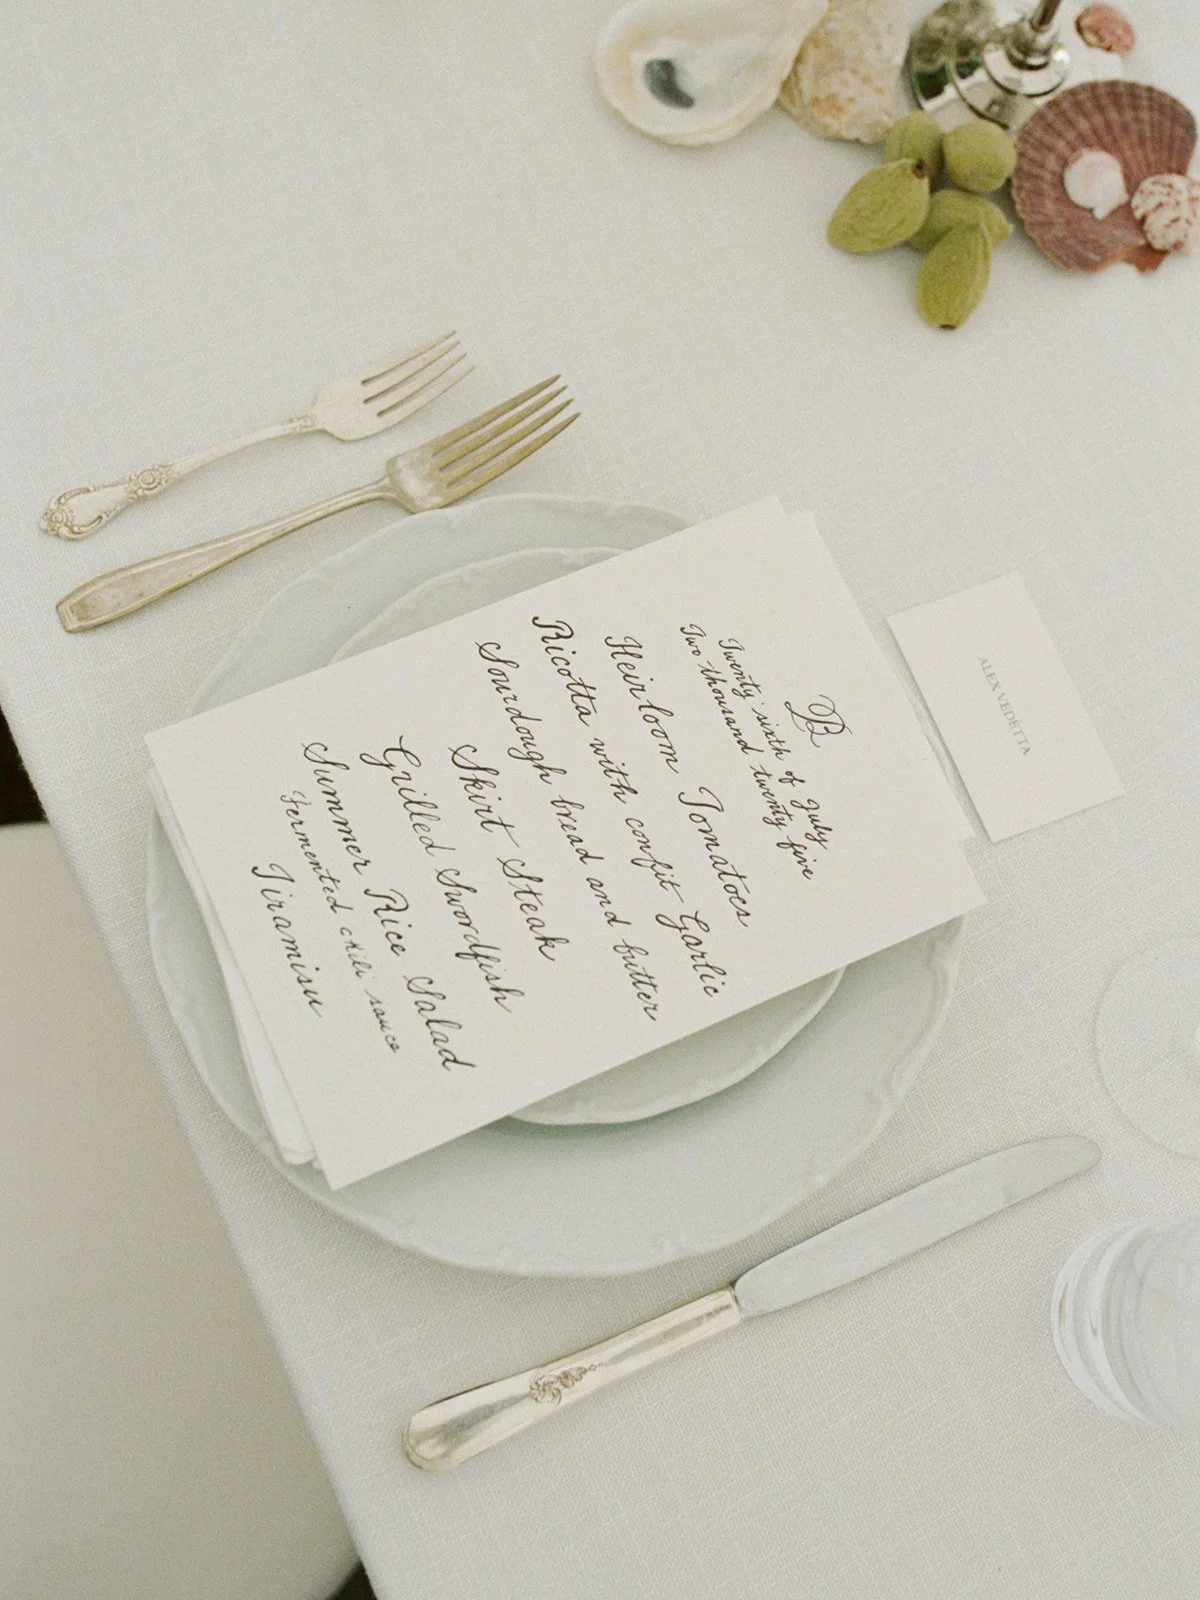 B
Twenty sixth of July
Two thousand twenty five
Heirloom Tomatoes
Ricotta with confit Garlic
Sourdough bread and butter
Skirt Steak
Grilled Swordfish
Summer Rice Salad
Fermented chili sauce
Tiramisu
ALEX VEDETTA